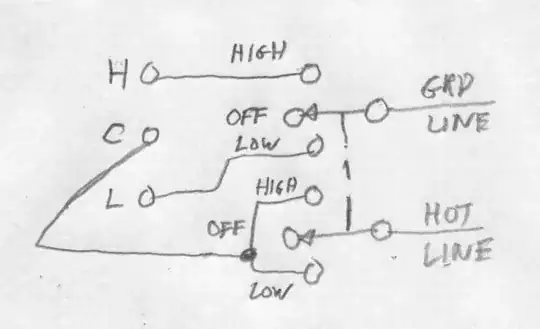 H HIGH
OFF GRD
LINE
C
LOW
L HIGH
OFF HOT
LINE
LOW